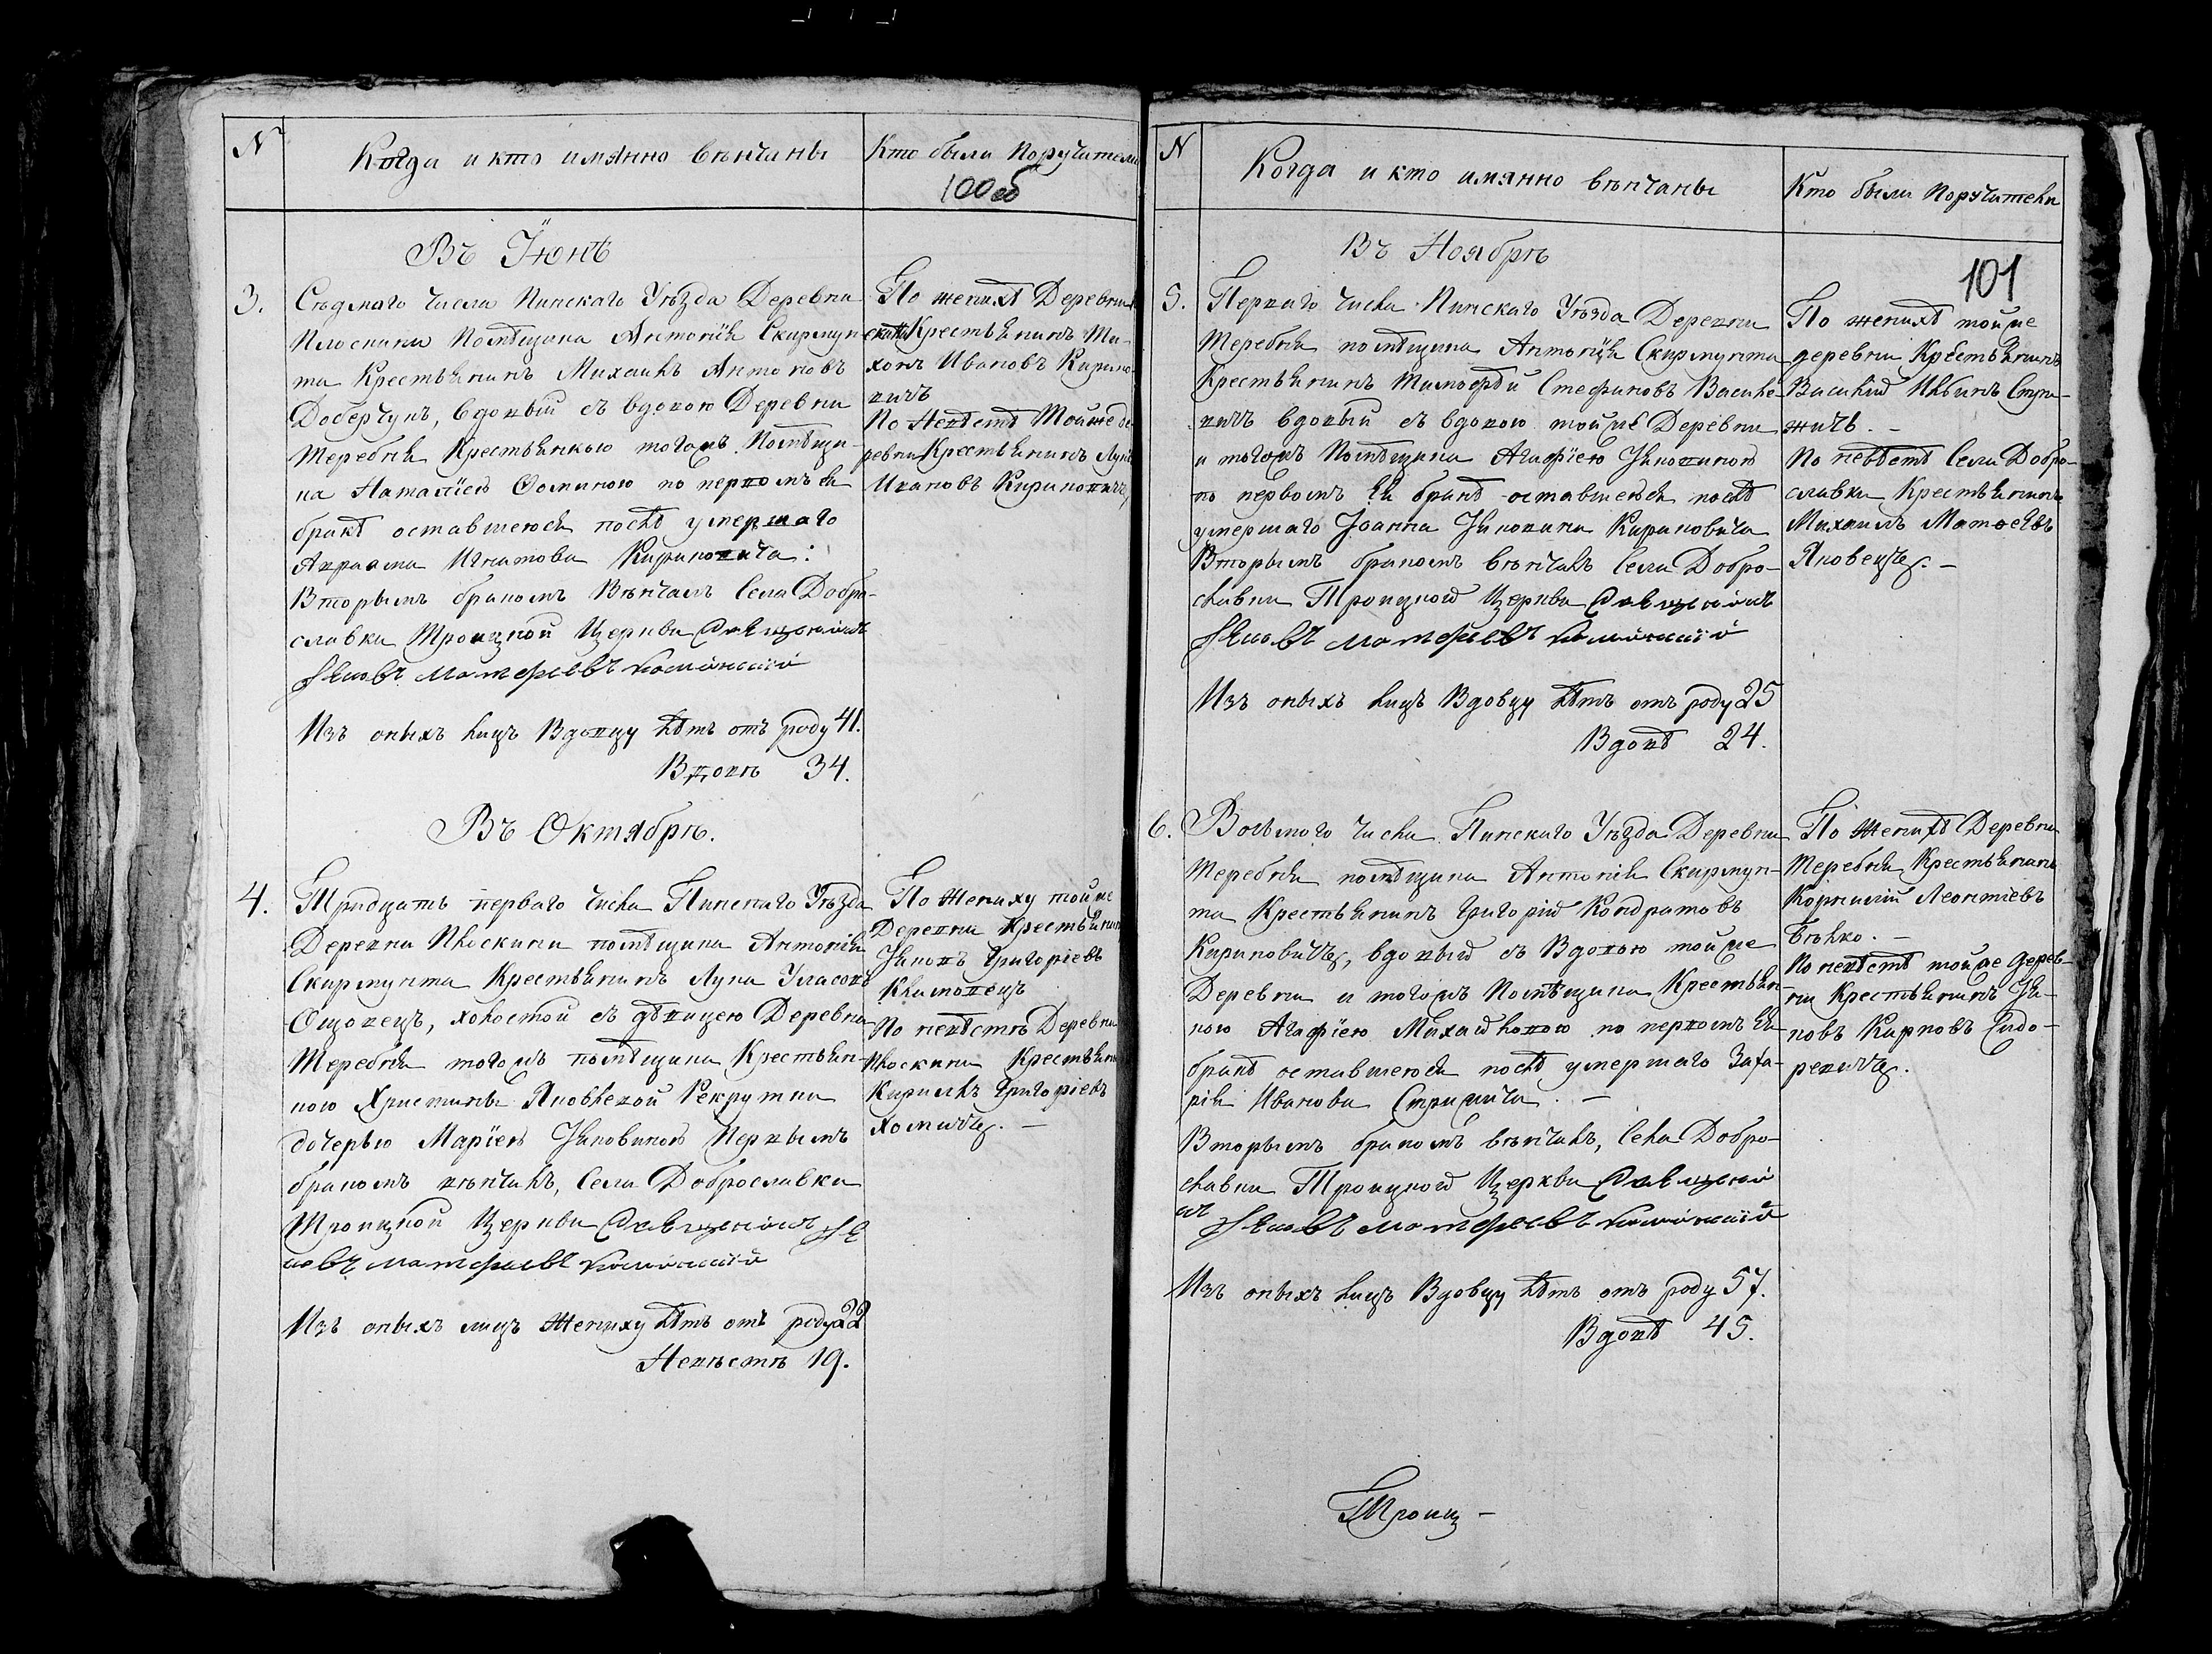 N
Когда и кто имянно вѣнчаны
Кто были Поручители
100 об
Въ Іюнѣ
3.
Сѣдмаго числа Пинскаго Уѣзда Деревни
Плоскини Помѣщика Антонія Скирмун-
та Крестьянинъ Михаилъ Антоновъ
Доберчукъ, вдовый съ вдовою Деревни
Теребня Крестьянкою тогожъ Помѣщи-
ка Наталіею Фоминою по первомъ ея
бракѣ оставшеюся послѣ умершаго
Авраама Игнатова Кириновича:
Вторымъ бракомъ Вѣнчалъ Села Добро-
славки Троицкой Церкви Священникъ
Яковъ Матфеевъ
Изъ оныхъ лицъ Вдовцу лѣтъ отъ роду 41.
Вдовѣ 34.
По женихѣ Деревни
Крестьянинъ Ти-
хонъ Ивановъ Кирино-
вичъ
По Невѣстѣ Тойже де-
ревни Крестьянинъ Лука
Ивановъ Кириновичъ
Въ Октябрѣ.
4.
Тридцать перваго числа Пинскаго Уѣзда
Деревни Плоскини помѣщика Антонія
Скирмунта Крестьянинъ Лука Уласовъ
Ощовецъ, холостой съ дѣвицею Деревни
Теребня тогожъ помѣщика Крестьян-
кою Христины Яковлевой Рекрутки
дочерью Маріею Яковиною Первымъ
бракомъ вѣнчалъ, Села Доброславки
Троицкой Церкви Священникъ Я
ковъ Матфеевъ
Изъ оныхъ лицъ Жениху лѣтъ отъ роду 22
Невѣстѣ 19.
По Жениху тойже
Деревни Крестьянин
Яковъ Григоріевъ
Климовецъ
По невѣстѣ Деревни
Плоскини Крестьянин
Кирилъ Григоріевъ
Хомичъ. —
N
Когда и кто имянно вѣнчаны
Кто были Поручители
101
Въ Ноябрѣ
5.
Перваго числа Пинскаго Уѣзда Деревни
Теребня помѣщика Антонія Скирмунта
Крестьянинъ Тимофѣй Стефановъ Василе-
вичъ вдовый съ вдовою тойже Деревни
и тогожъ Помѣщика Агафіею Яковиною
по первомъ Ея бракѣ оставшеюся послѣ
умершаго Іоанна Яковина Кириновича
Вторымъ бракомъ вѣнчалъ Села Добро-
славки Троицкой Церкви Священникъ
Яковъ Матфеевъ
Изъ оныхъ лицъ Вдовцу лѣтъ отъ роду 25
Вдовѣ 24.
По женихѣ тойже
деревни Крестьянинъ
Василій Ильинъ Ступа-
жичъ. —
По невѣстѣ Села Добро-
славки Крестьянинъ
Михаилъ Матөеевъ
Яковецъ. —
6.
Восьмого числа Пинскаго Уѣзда Деревни
Теребня помѣщика Антонія Скирмун-
та Крестьянинъ Григорій Кондратовъ
Кириновичъ, вдовый съ Вдовою тойже
Деревни и тогожъ Помѣщика Крестьян-
кою Агафіею Михайловою по первомъ Ея
бракѣ оставшеюся послѣ умершаго Заха-
рія Иванова Стрижича. —
Вторымъ бракомъ вѣнчалъ, Села Добро-
славки Троицкой Церкви Священни
къ Яковъ Матфеевъ
Изъ оныхъ лицъ Вдовцу лѣтъ отъ роду 57.
Вдовѣ 45.
По Женихѣ Деревни
Теребня Крестьянинъ
Корнилій Леонтіевъ
Вѣлко. —
По невѣстѣ тойже дерев-
ни Крестьянинъ Я-
ковъ Карповъ Сидо-
ревичъ.
Троиц —